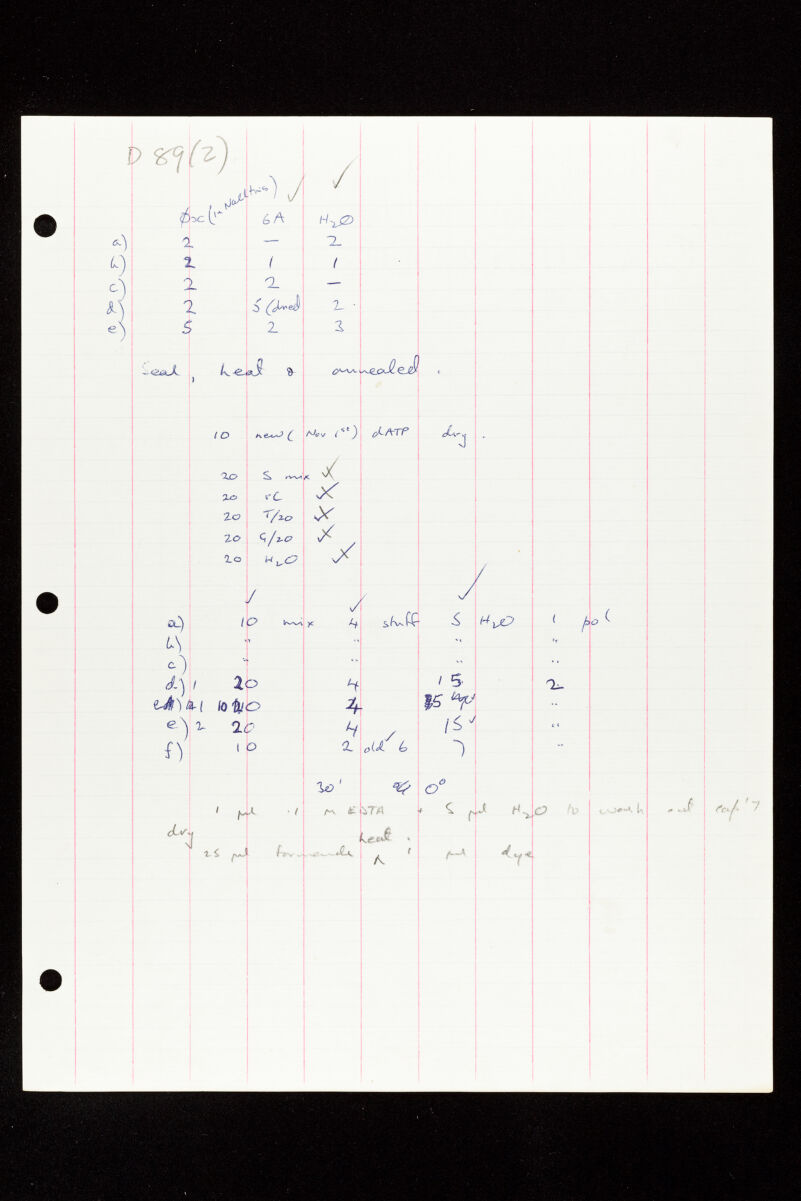 D 89(2)
φx (in NaCl tris) ✓ 6A ✓ H2O
a) 2 — 2
b) 2 1 1
c) 2 2 —
d) 2 5 (dried 2
e) 5 2 3
Seal, heat & annealed.
10 new (Nov 1st) dATP dry.
20 S mix
20 rC
20 T/20
20 G/20
20 H2O
✓ ✓ ✓
a) 10 mix 4 stuff 5 H2O 1 pol
b) " " " "
c) " " " "
d) 1 20 4 15 2
e) 1 10 4 5 "
e) 2 20 4 15 ✓ "
f) 10 2 old ✓ 6 7 "
30' at 0°
1 µl .1 M EDTA + 5 µl H2O to wash out cap'y
dry heat
25 µl formamide 1 µl dye